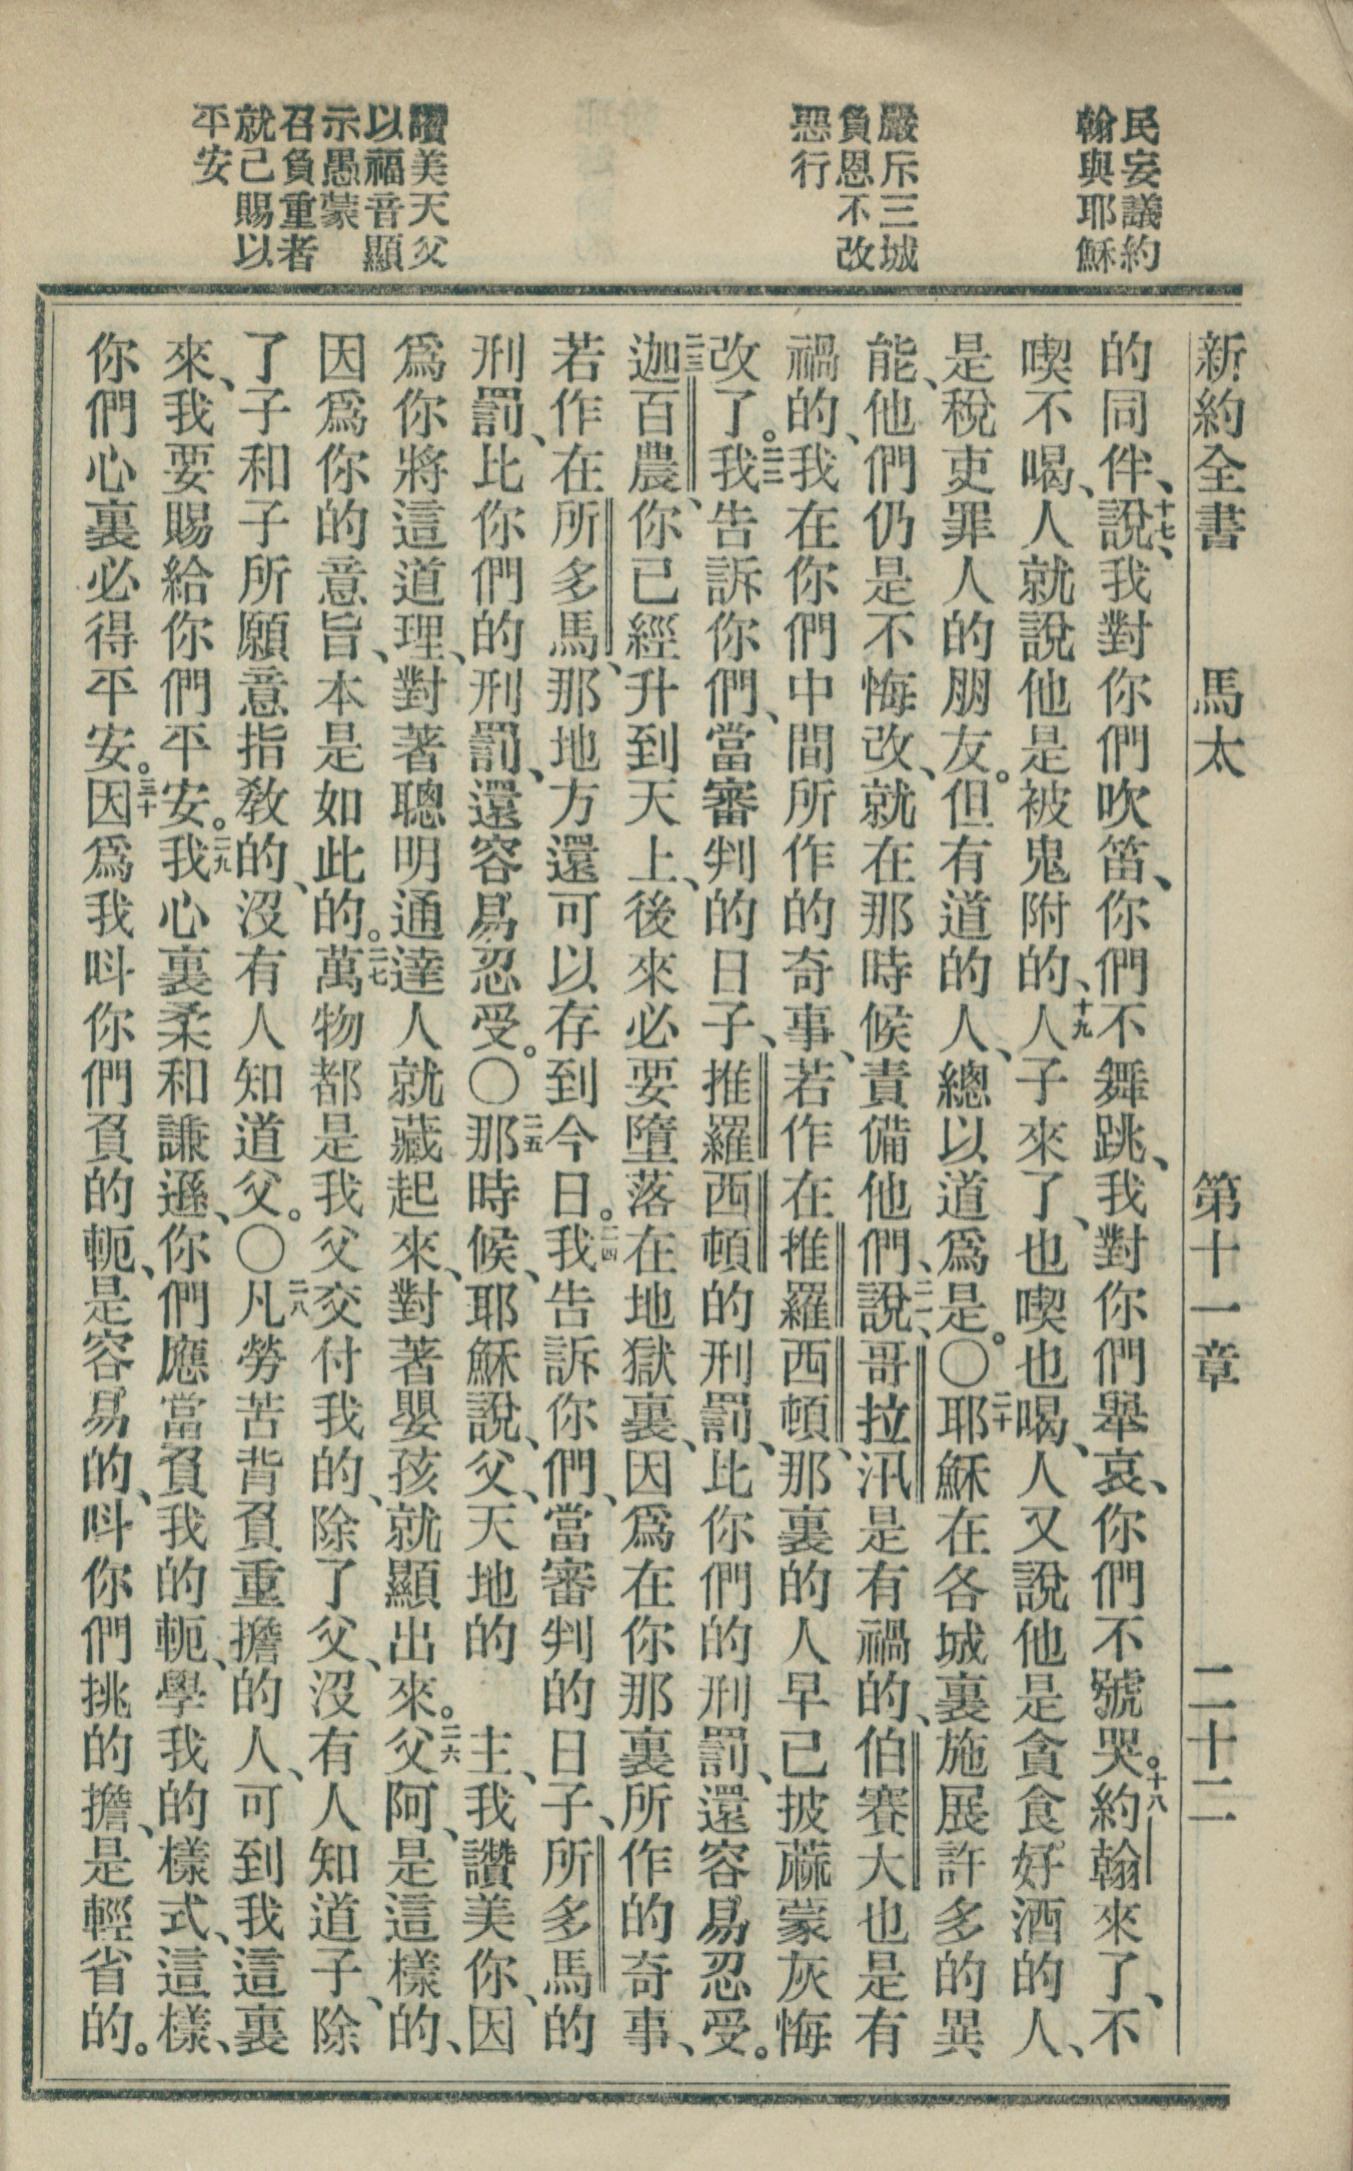 民妄議約
翰與耶穌
嚴斥三城
負恩不改
惡行
讚美天父
以福音顯
示愚蒙
召負重者
就己賜以
平安
新約全書 馬太 第十一章 二十二
的同伴、十七說、我對你們吹笛、你們不舞跳、我對你們舉哀、你們不號哭。十八約翰來了、不
喫不喝、人就說他是被鬼附的、十九人子來了、也喫也喝、人又說他是貪食好酒的人、
是稅吏罪人的朋友。但有道的人、總以道爲是。〇二十耶穌在各城裏施展許多的異
能、他們仍是不悔改、就在那時候責備他們、二一說、哥拉汛是有禍的、伯賽大也是有
禍的、我在你們中間所作的奇事、若作在推羅西頓、那裏的人早已披蔴蒙灰悔
改了。二二我告訴你們、當審判的日子、推羅西頓的刑罰、比你們的刑罰、還容易忍受。
二三迦百農、你已經升到天上、後來必要墮落在地獄裏、因爲在你那裏所作的奇事、
若作在所多馬、那地方還可以存到今日。二四我告訴你們、當審判的日子、所多馬的
刑罰、比你們的刑罰、還容易忍受。〇二五那時候、耶穌說、父、天地的 主、我讚美你、因
爲你將這道理、對著聰明通達人就藏起來、對著嬰孩就顯出來。二六父阿、是這樣的、
因爲你的意旨、本是如此的。二七萬物都是我父交付我的、除了父、沒有人知道子、除
了子和子所願意指敎的、沒有人知道父。〇二八凡勞苦背負重擔的人、可到我這裏
來、我要賜給你們平安。二九我心裏柔和謙遜、你們應當負我的軛、學我的樣式、這樣、
你們心裏必得平安。三十因爲我呌你們負的軛、是容易的、呌你們挑的擔、是輕省的。